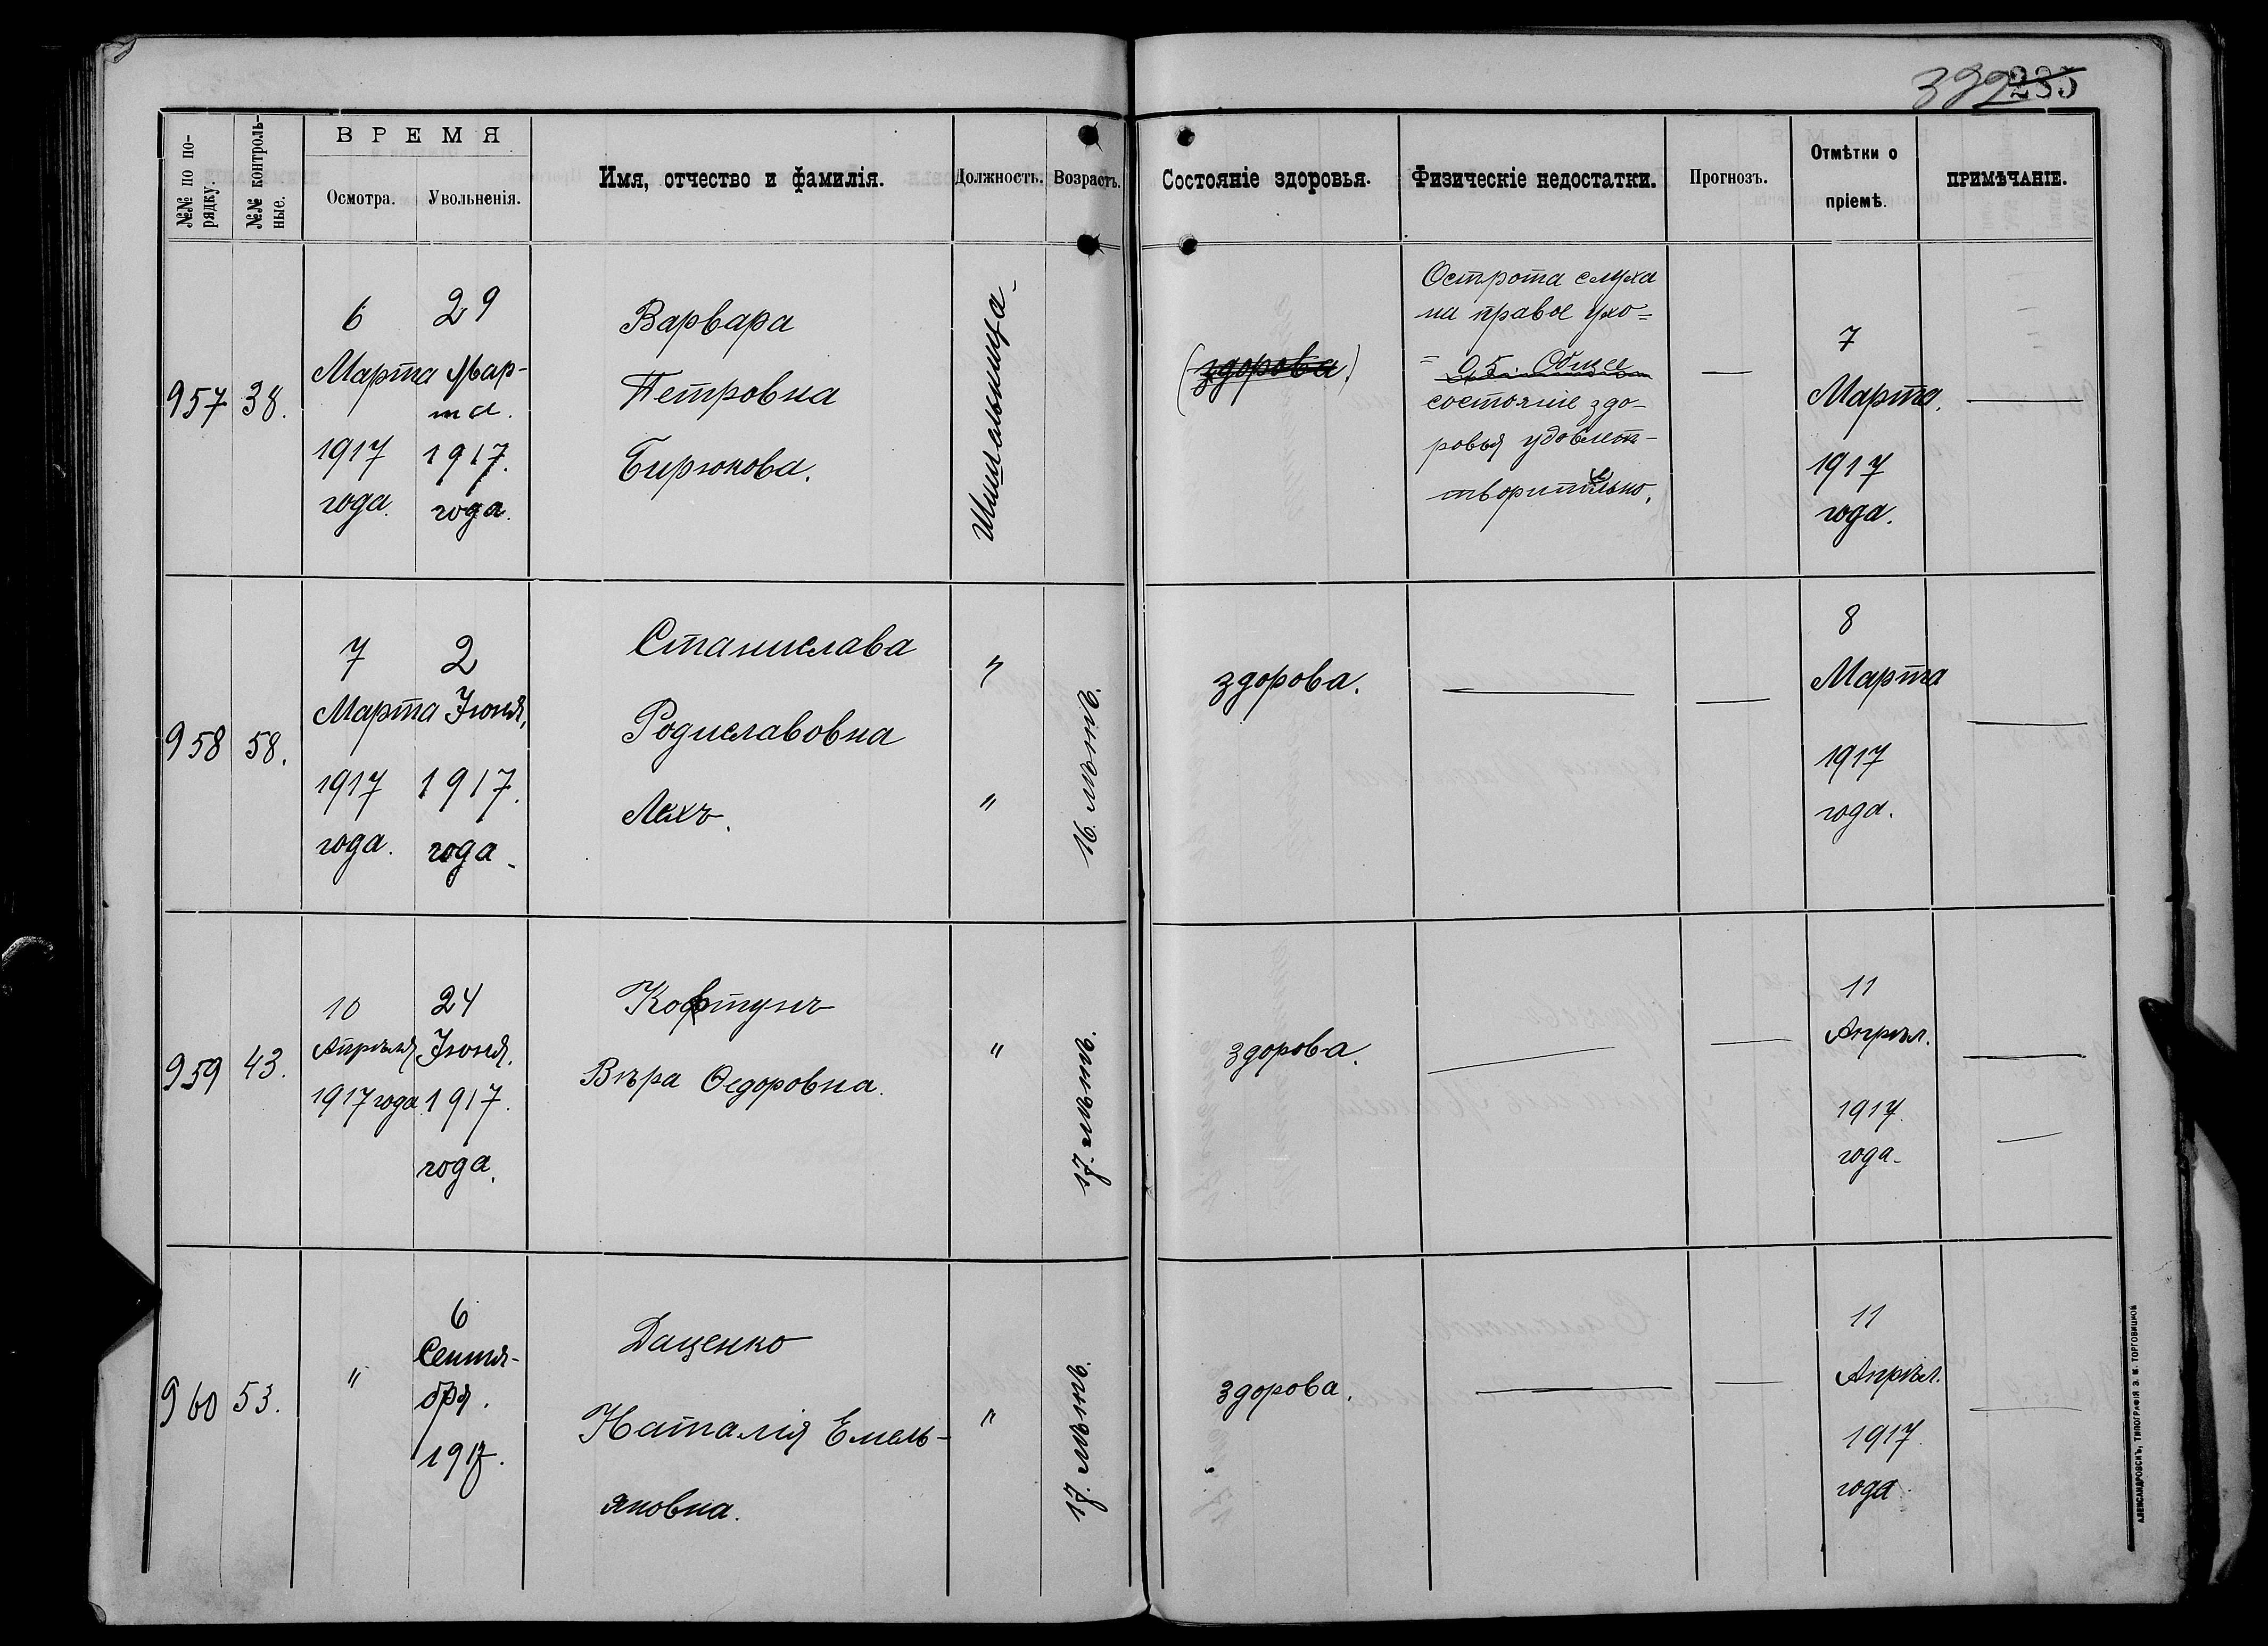 399 235
№№ по по-
рядку.
№№ контроль-
ные.
ВРЕМЯ
Осмотра.
Увольненія.
Имя, отчество и фамилія.
Должность.
Возрастъ.
Состояніе здоровья.
Физическіе недостатки.
Прогнозъ.
Отмѣтки о
пріемѣ.
ПРИМѢЧАНІЕ.
957
38.
6
Марта
1917
года.
29
Мар-
та.
1917.
года.
Варвара
Петровна
Бирюкова.
(здорова.)
Острота слуха
на правое ухо=
= 0,5. Общее
состояніе здо-
ровья удовлет-
творительно.
—
7
Марта.
1917
года.
—
958
58.
7
Марта
1917
года.
2
Іюня,
1917.
года.
Станислава
Родиславовна
Лехъ.
"
"
16 лѣтъ.
здорова.
—
—
8
Марта
1917
года.
—
959
43.
10
Апрѣля
1917 года
24
Іюня.
1917.
года.
Кофтунъ
Вѣра Ѳедоровна.
"
17 лѣтъ.
здорова.
—
—
11
Апрѣл.
1917.
года.
—
—
960
53.
"
6
Сентя-
бря.
1917.
Даценко
Наталія Емель-
яновна.
"
17 лѣтъ.
здорова.
—
—
11
Апрѣл.
1917.
года.
—
АЛЕКСАНДРОВСКЪ, ТИПОГРАФІЯ Э. И. ТОРГОВИЦКОЙ